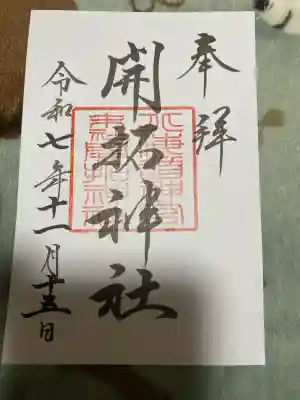 奉拝
開拓神社
令和七年十一月十五日